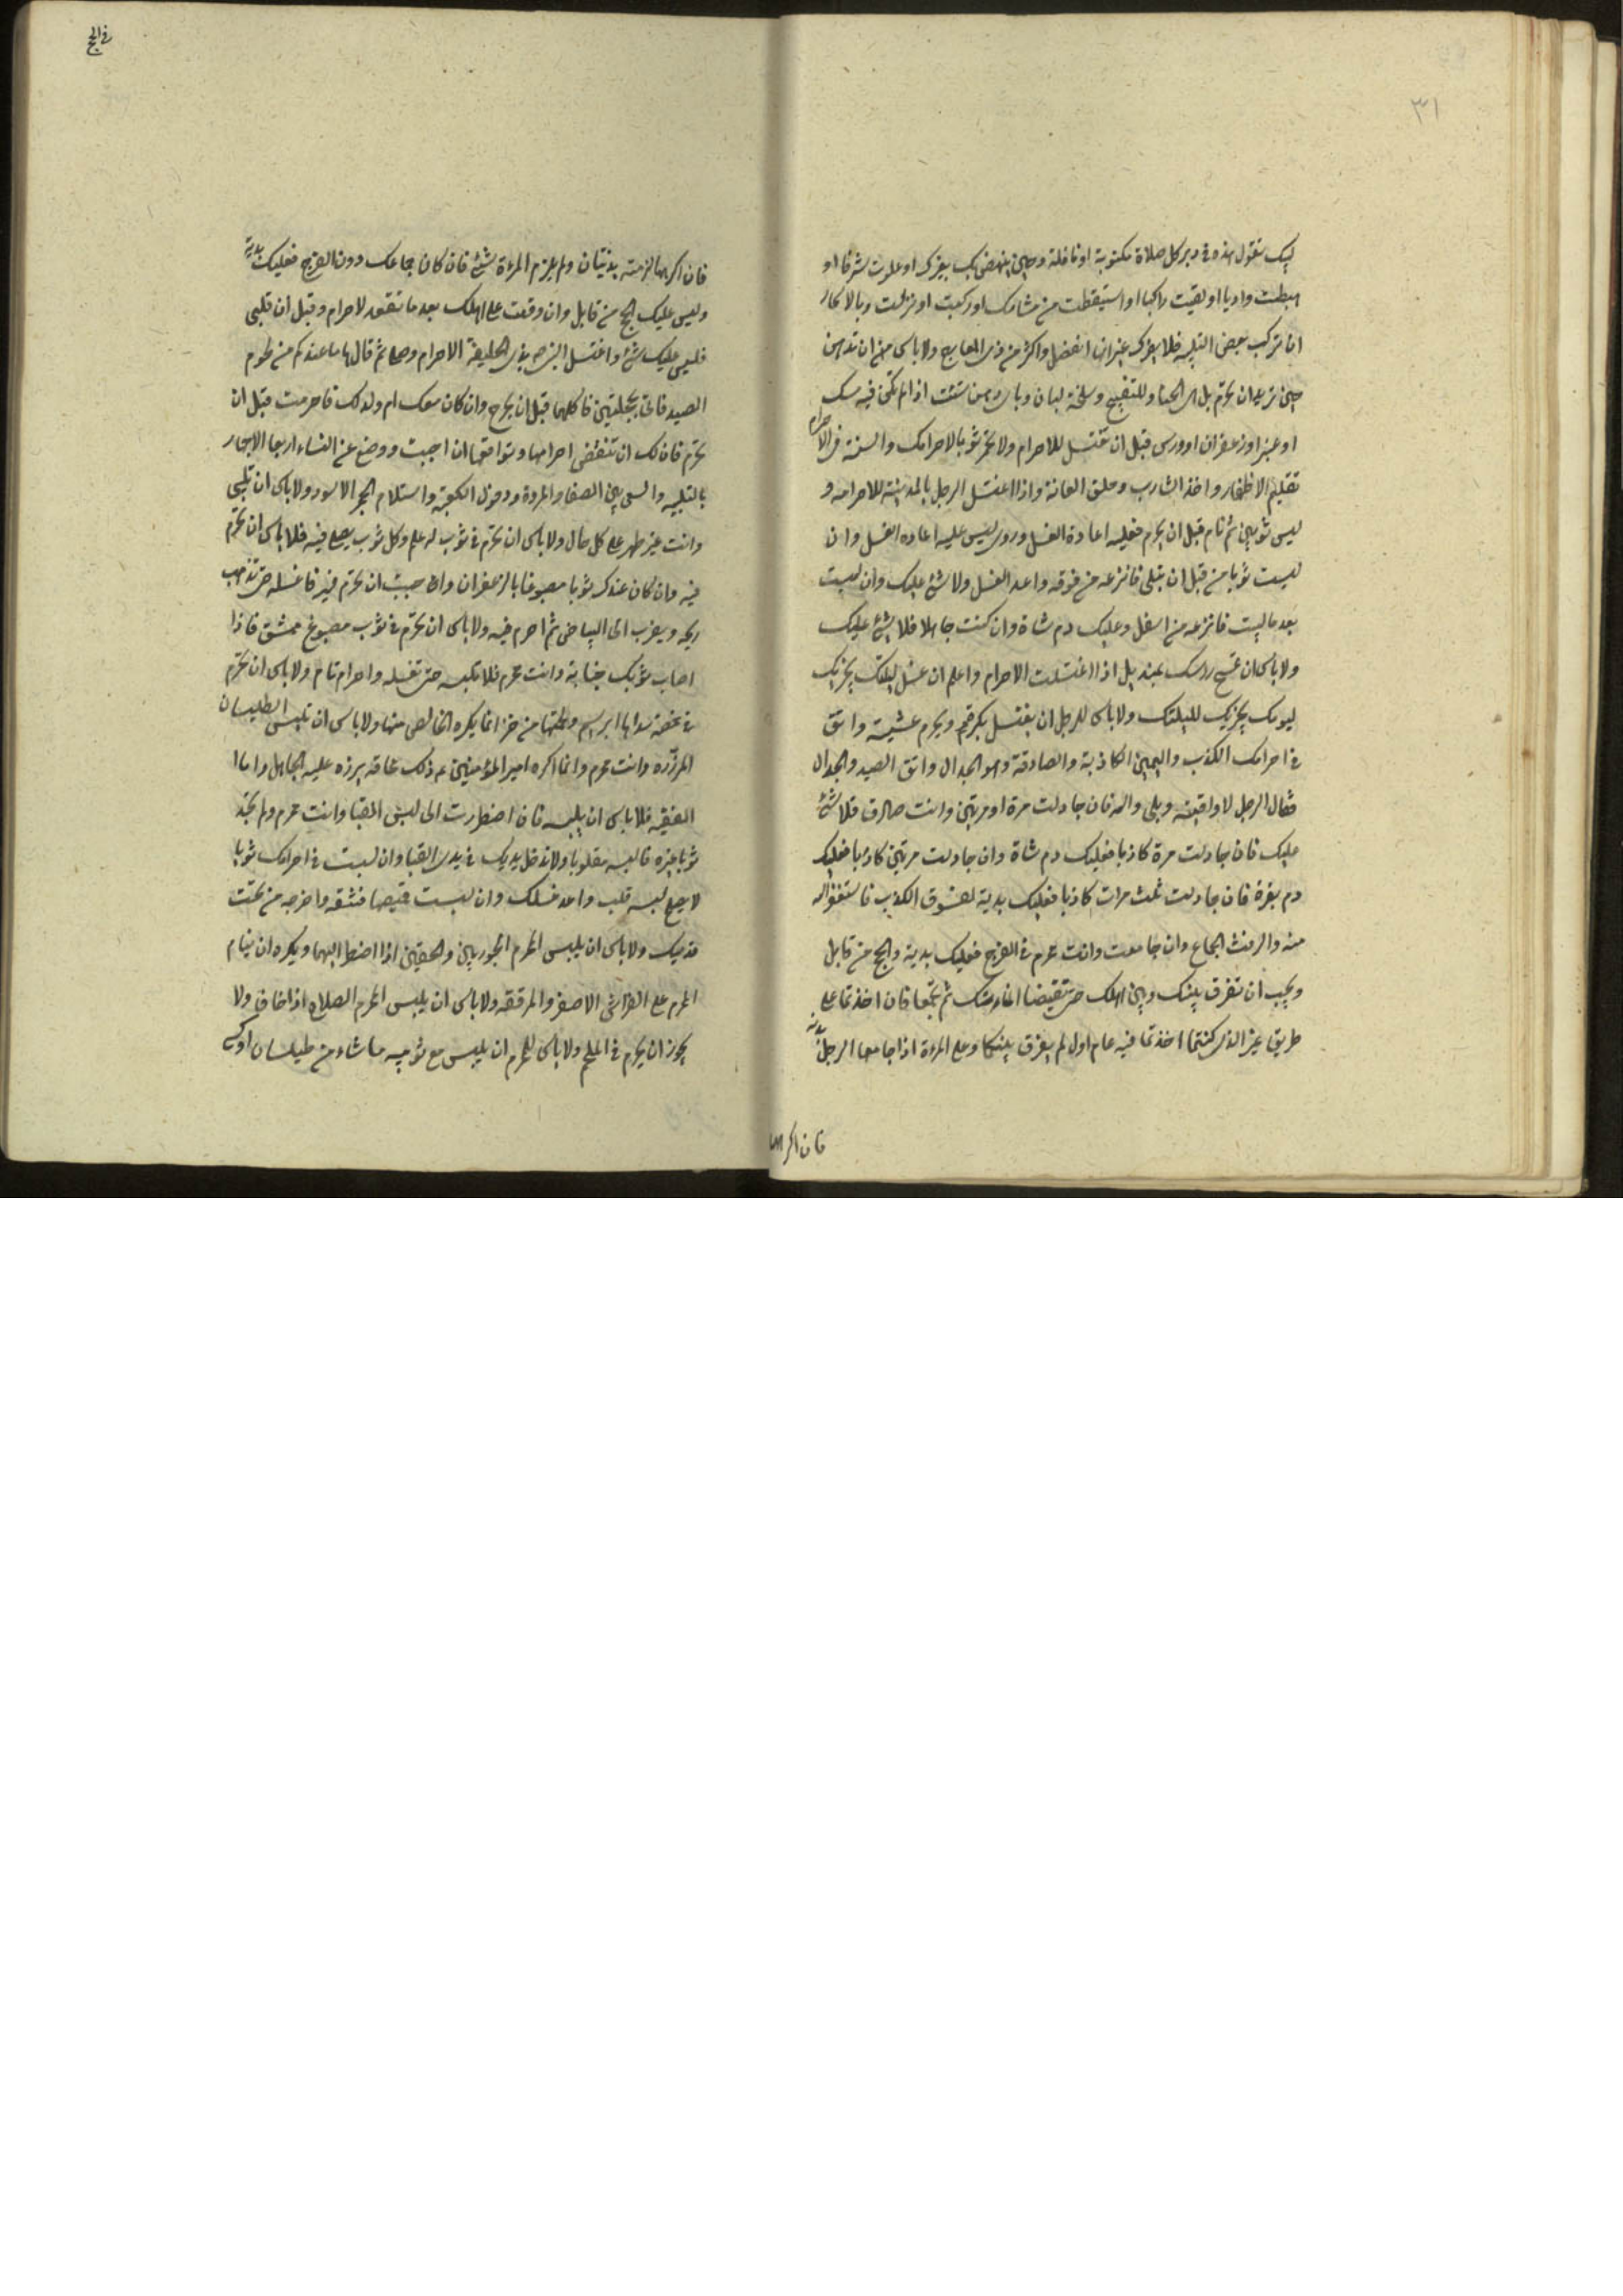 ٣١
لبيك تقول هذه في دبر كل صلاة مكتوبة او نافلة وحين ينهض بك بعيرك او علوت شرفا او
هبطت واديا او لقيت راكبا او استيقظت من منامك او ركبت او نزلت وبالاسحار
ان تركت بعض التلبية فلا يضرك غير انها افضل واكثر من ذي المعارج ولا باس من ان تدهن
حين تريد ان تحرم بدهن الحناء والبنفسج وسليخة البان وباي دهن شئت اذا لم يكن فيه مسك
او عنبر او زعفران او ورس قبل ان تغتسل للاحرام ولا تجمر ثوبا لاحرامك والسنة في الاحرام
تقليم الاظفار واخذ الشارب وحلق العانة واذا اغتسل الرجل بالمدينة لاحرامه و
لبس ثوبين ثم نام قبل ان يحرم فعليه اعادة الغسل وروي ليس عليه اعاده الغسل وان
لبست ثوبا من قبل ان تلبي فانزعه من فوقه واعد الغسل ولا شئ عليك وان لبست
بعد ما لبيت فانزعه من اسفل وعليك دم شاة وان كنت جاهلا فلا شئ عليك
ولا باس ان تمسح راسك بمنديل اذا اغتسلت للاحرام واعلم ان غسل ليلتك يجزيك
ليومك يجزيك لليلتك ولا باس للرجل ان يغتسل بكرة ويحرم عشية واتق
في احرامك الكذب واليمين الكاذبة والصادقة وهو الجدال واتق الصيد والجدال
فقال الرجل لا والله وبلى والله فان جادلت مرة او مرتين وانت صادق فلا شئ
عليك فان جادلت مرة كاذبا فعليك دم شاة وان جادلت مرتين كاذبا فعليك
دم بقرة فان جادلت ثلث مرات كاذبا فعليك بدنة الفسوق الكذب فاستغفر الله
منه والرفث الجماع وان جامعت وانت محرم في الفرج فعليك بدنة والحج من قابل
ويجب ان تفرق بينك وبين اهلك حتى تقضيا المناسك ثم تجتمعا فان اخذتما على
طريق غير الذي كنتما اخذتما فيه عام اول لم يفرق بينكما وعلى المرءة اذا جامعها الرجل بدنة
فان اكرهها
في الحج
فان اكرهها لزمته بدنتان ولم يلزم المرءة شئ فان كان جماعك دون الفرج فعليك بدنة
وليس عليك الحج من قابل وان وقعت على اهلك بعد ما تعقد للاحرام وقبل ان تلبي
فليس عليك شئ واغتسل النبي ص بذي الحليفة للاحرام وصلى ثم قال هاتوا ما عندكم من لحوم
الصيد فاتي بحجلتين فاكلهما قبل ان يحرم وان كان معك ام ولد لك فاحرمت قبل ان
تحرم فان لك ان تنقض احرامها وتواقعها ان احببت ووضع عن النساء اربعا الاجهار
بالتلبية والسعي بين الصفا والمروة ودخول الكعبة واستلام الحجر الاسود ولا باس ان تلبي
وانت على غير طهر على كل حال ولا باس ان تحرم في ثوب له علم وكل ثوب يصلى فيه فلا باس ان تحرم
فيه وان كان عندك ثوبا مصبوغا بالزعفران واحببت ان تحرم فيه فاغسله حتى تذهب
ريحه ويضرب الى البياض ثم احرم فيه ولا باس ان تحرم في ثوب مصبوغ ممشق فاذا
اصاب ثوبك جنابة وانت محرم فلا تلبسه حتى تغسله واحرامك تام ولا باس ان تحرم
في خميصة سداها ابريسم ولحمتها من خز انما يكره الخالص منها ولا باس ان تلبس الطيلسان
المزرّره وانت محرم وانما اكره امير المؤمنين ع ذلك مخافة يزره عليه الجاهل واما
الفقيه فلا باس ان يلبسه فان اضطررت الى لبس القبا وانت محرم ولم تجد
ثوبا غيره فالبسه مقلوبا ولا تدخل يديك في يدي القبا وان لبست في احرامك ثوبا
لا يصلح لبسه فلب واعد غسلك وان لبست قميصا فشقه واخرجه من تحت
قدميك ولا باس ان يلبس المحرم الجوربين والخفين اذا اضطر اليهما ويكره ان ينام
المحرم على الفراش الاصفر والمرفقة ولا باس ان يلبس المحرم السلاح اذا خاف ولا
يجوز ان يحرم في الملحم ولا باس للمحرم ان يلبس مع ثوبيه ما شاء من طيلسان او كساء